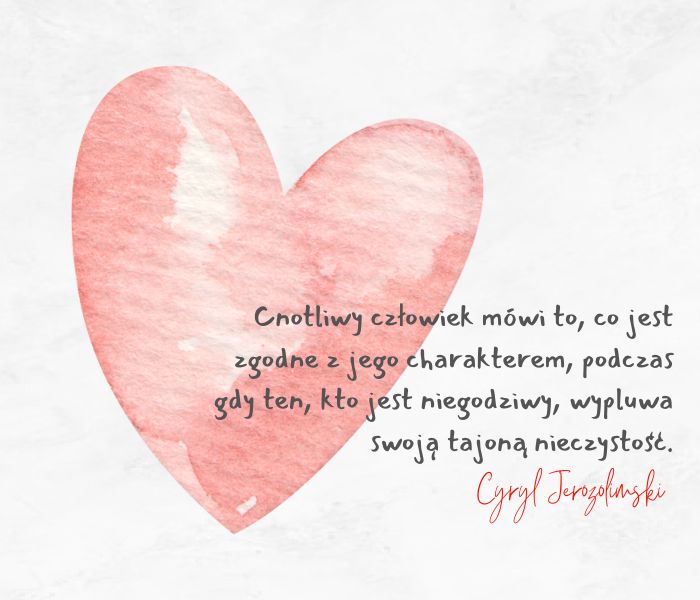 Cnotliwy człowiek mówi to, co jest
zgodne z jego charakterem, podczas
gdy ten, kto jest niegodziwy, wypluwa
swoją tajoną nieczystość.
Cyryl Jerozolimski